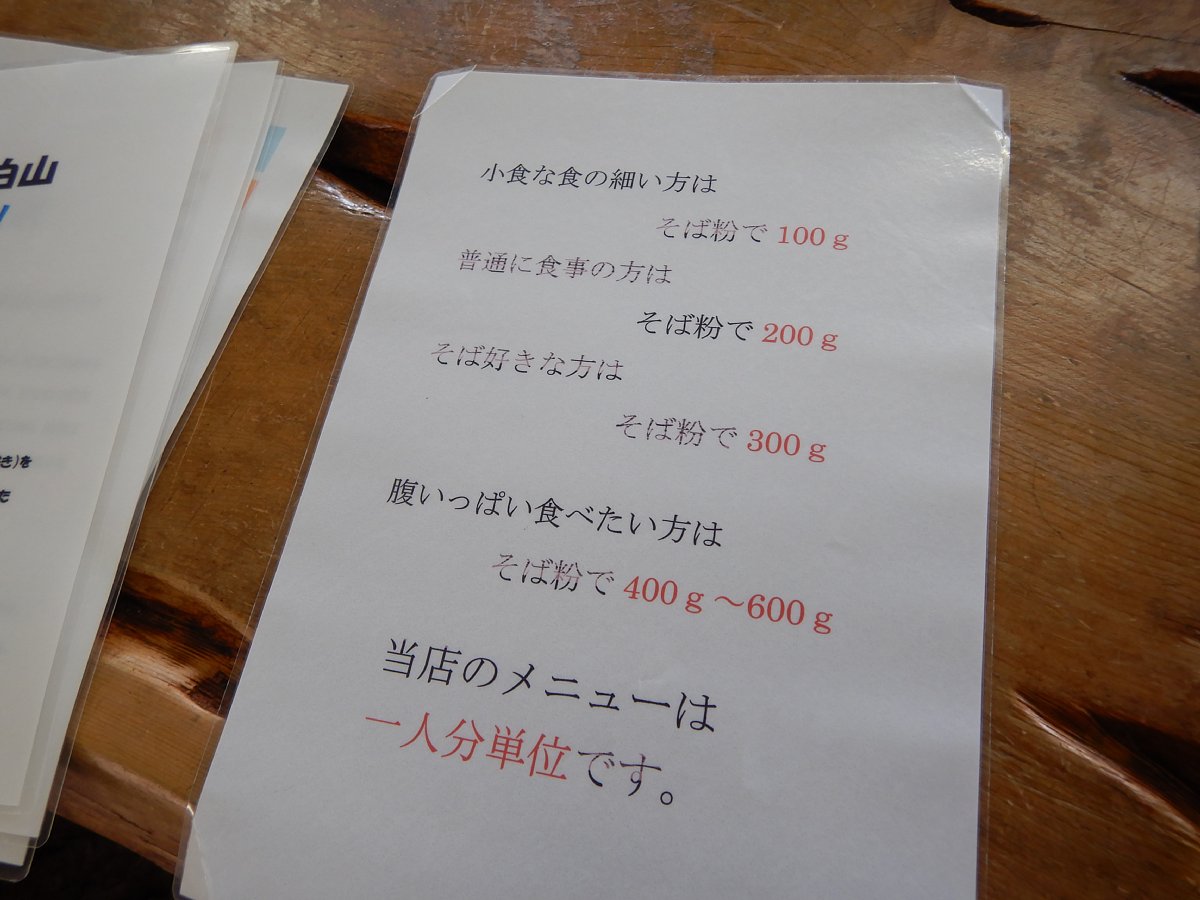 小食な食の細い方は
そば粉で 100ｇ
普通に食事の方は
そば粉で 200ｇ
そば好きな方は
そば粉で 300ｇ
腹いっぱい食べたい方は
そば粉で 400ｇ～600ｇ
当店のメニューは
一人分単位です。
山
き)を
た